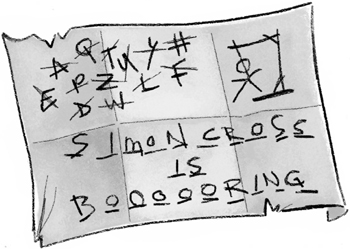 A Q T U Y H
E P Z L F
D W
SIMON CROSS
IS
BOOOOORING